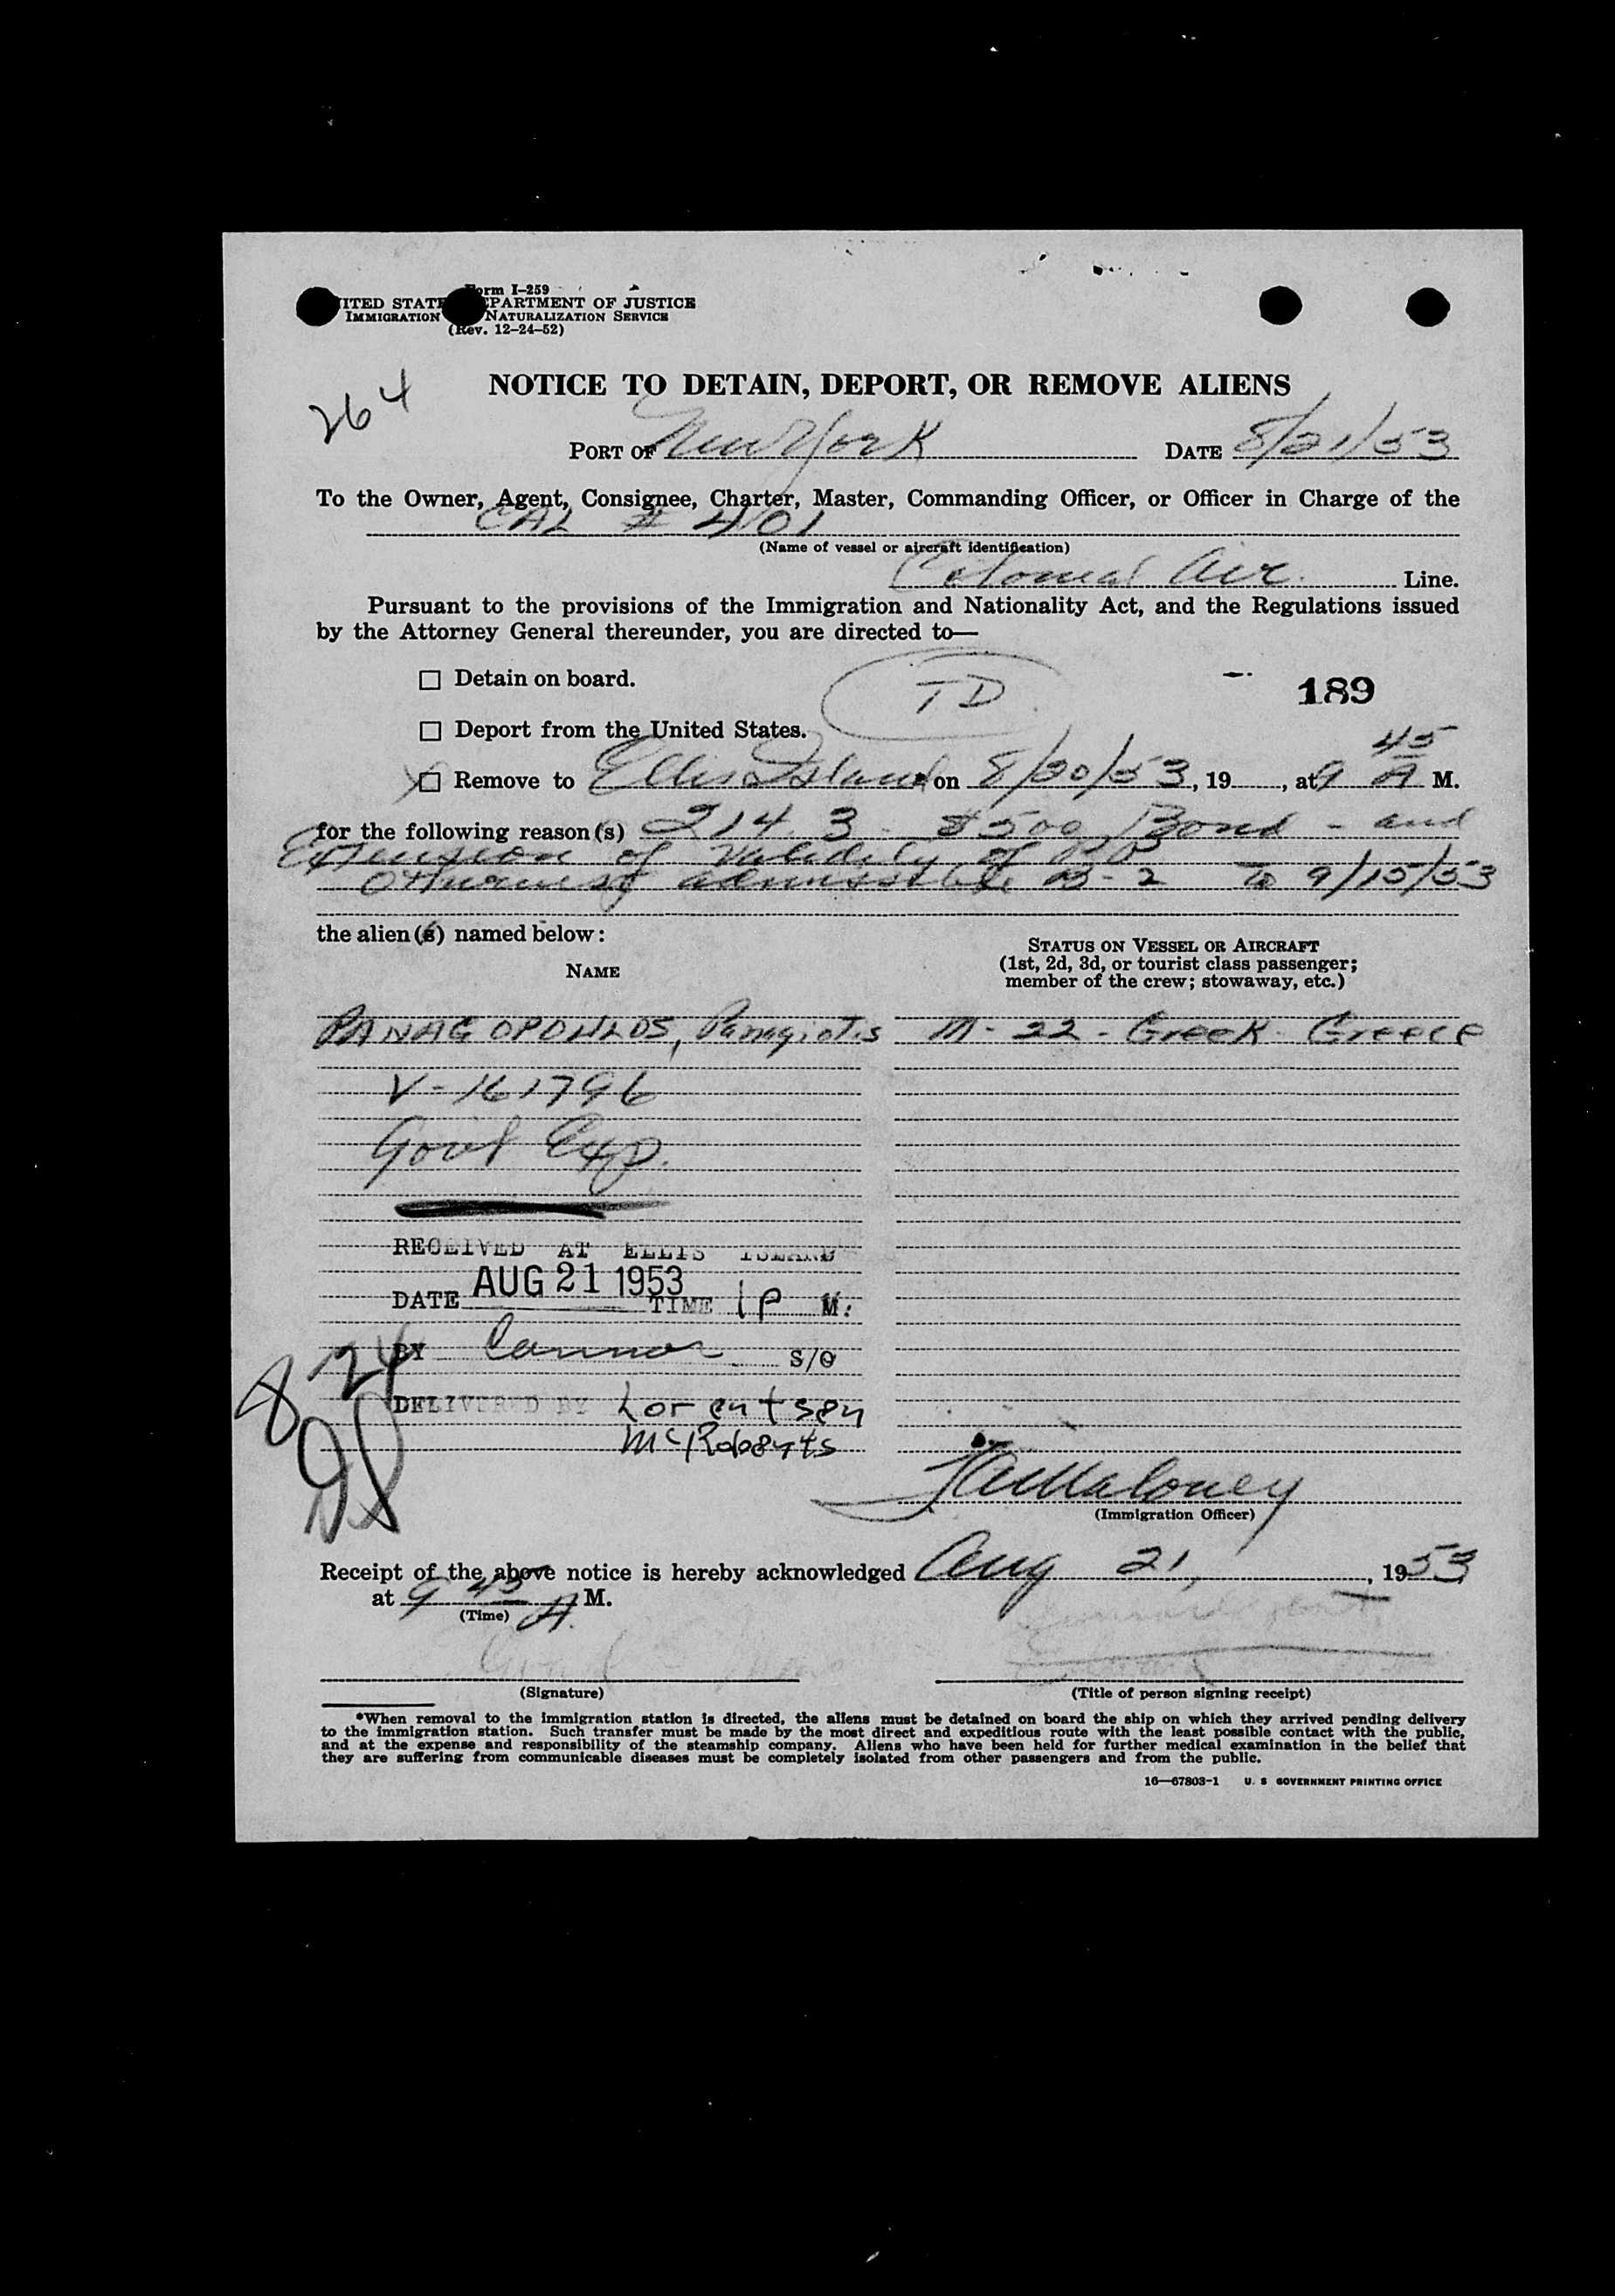 Form I-259
UNITED STATES DEPARTMENT OF JUSTICE
IMMIGRATION NATURALIZATION SERVICE
(Rev. 12-24-52)
264
NOTICE TO DETAIN, DEPORT, OR REMOVE ALIENS
PORT OF New York DATE 8/21/53
To the Owner, Agent, Consignee, Charter, Master, Commanding Officer, or Officer in Charge of the
CAL # 401
(Name of vessel or aircraft identification)
Colonial Air Line.
Pursuant to the provisions of the Immigration and Nationality Act, and the Regulations issued
by the Attorney General thereunder, you are directed to—
☐ Detain on board.
TD
189
☐ Deport from the United States.
X ☐ Remove to Ellis Island on 8/20/53, 19 , at 9 45 A M.
for the following reason(s) 214.3 - $500 Bond - and
Extension of Validity of PP
Otherwise admissible B-2 To 9/15/53
the alien(s) named below:
NAME
STATUS ON VESSEL OR AIRCRAFT
(1st, 2d, 3d, or tourist class passenger;
member of the crew; stowaway, etc.)
PANAGOPOULOS, Panagiotis M - 22 - Greek - Greece
V-161796
Gov't Exp.
RECEIVED AT ELLIS ISLAND
DATE AUG 21 1953 TIME 1 P M.
BY Connor S/O
8/24
DELIVERED BY Lorentsen
McRoberts
JA Maloney
(Immigration Officer)
Receipt of the above notice is hereby acknowledged Aug 21, , 1953
at 9 45 A M.
(Time)
(Signature)
(Title of person signing receipt)
*When removal to the immigration station is directed, the aliens must be detained on board the ship on which they arrived pending delivery
to the immigration station. Such transfer must be made by the most direct and expeditious route with the least possible contact with the public,
and at the expense and responsibility of the steamship company. Aliens who have been held for further medical examination in the belief that
they are suffering from communicable diseases must be completely isolated from other passengers and from the public.
16—67803-1 U. S. GOVERNMENT PRINTING OFFICE